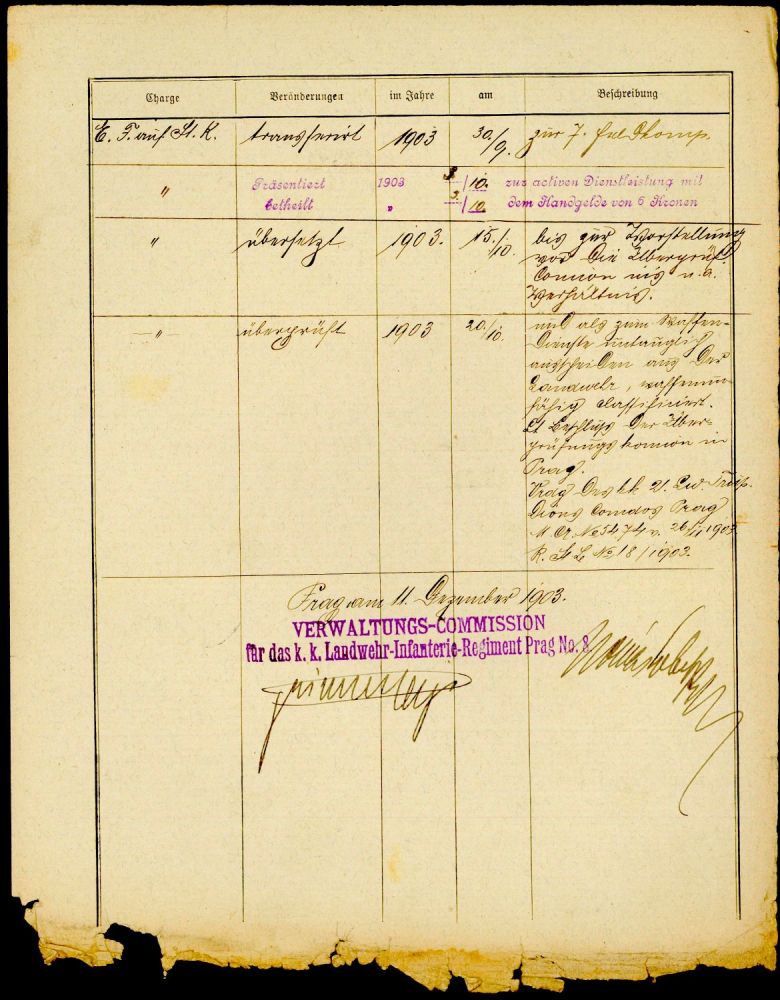 Charge Veränderungen im Jahre am Beschreibung
E. F. auf St. K. transferirt 1903 30/9. zur 7. Feldkomp.
" Präsentiert 1903 3/10. zur activen Dienstleistung mit
betheilt " 3/10. dem Handgelde von 6 Kronen
" übersetzt 1903. 15./10. bis zur Vorstellung
vor die Überprüf.
Comion
Verhältnis.
—"— überprüft 1903 20./10. und als zum Waffen-
dienste untauglich
ausscheiden aus der
Landwehr, waffenun-
fähig classificiert.
Lt Beschluss der Über-
prüfungskomion in
Prag.
des kk 21. Ldw. Trupp.
Dions Comdos Prag
M. A. No 5474 v. 26/11 1903
No 18/1903.
Prag am 11. Dezember 1903.
VERWALTUNGS-COMMISSION
für das k. k. Landwehr-Infanterie-Regiment Prag No. 8